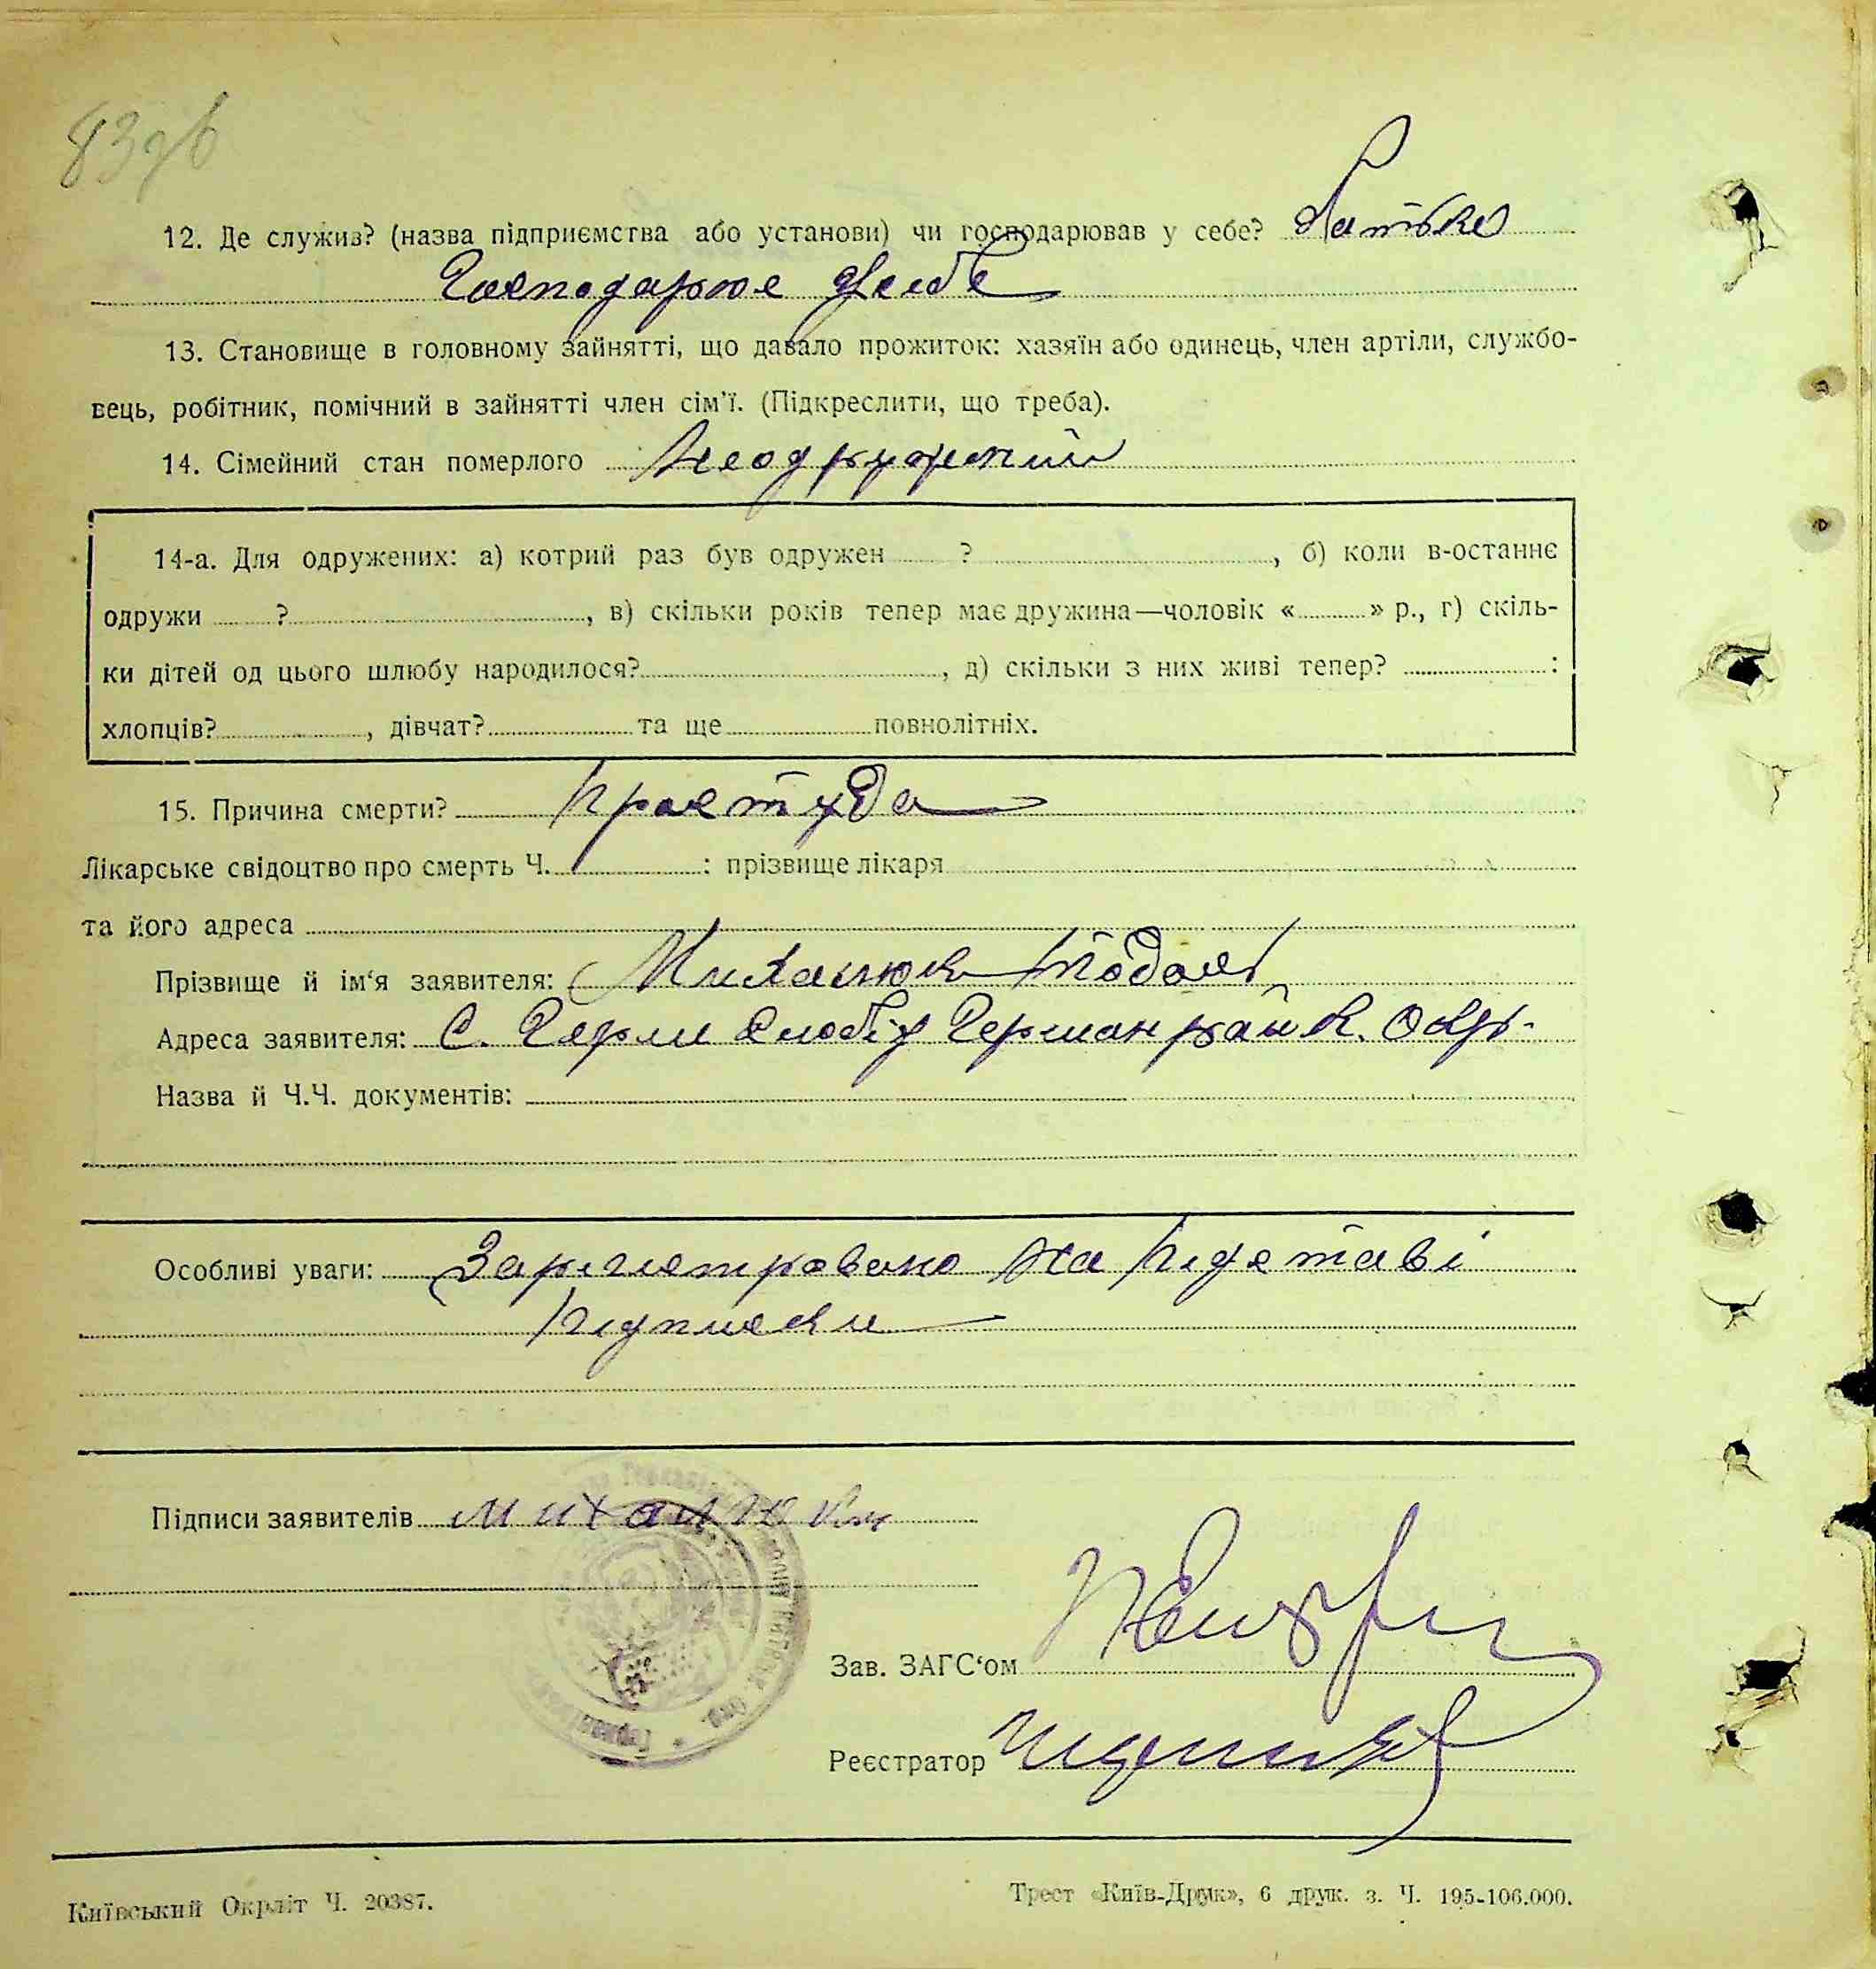 83зв
12. Де служив? (назва підприємства або установи) чи господарював у себе? Батько
Господарює у себе
13. Становище в головному зайнятті, що давало прожиток: хазяїн або одинець, член артіли, службо-
вець, робітник, помічний в зайнятті член сім'ї. (Підкреслити, що треба).
14. Сімейний стан померлого Неодружений
14-а. Для одружених: а) котрий раз був одружен ?, б) коли в-останнє
одружи ?, в) скільки років тепер має дружина—чоловік « » р., г) скіль-
ки дітей од цього шлюбу народилося?, д) скільки з них живі тепер? :
хлопців? , дівчат? та ще повнолітніх.
15. Причина смерти? Простуда
Лікарське свідоцтво про смерть Ч. : прізвище лікаря
та його адреса
Прізвище й ім'я заявителя: Михалюк Тодось
Адреса заявителя: С. Герм Слобід Герман район. Окр.
Назва й Ч.Ч. документів:
Особливі уваги: Зарегистровано на підставі
підписки
Підписи заявителів Михалюк
Зав. ЗАГС'ом
Реєстратор
Київський Окрліт Ч. 20387.
Трест «Київ-Друк», 6 друк. з. Ч. 195-106.000.